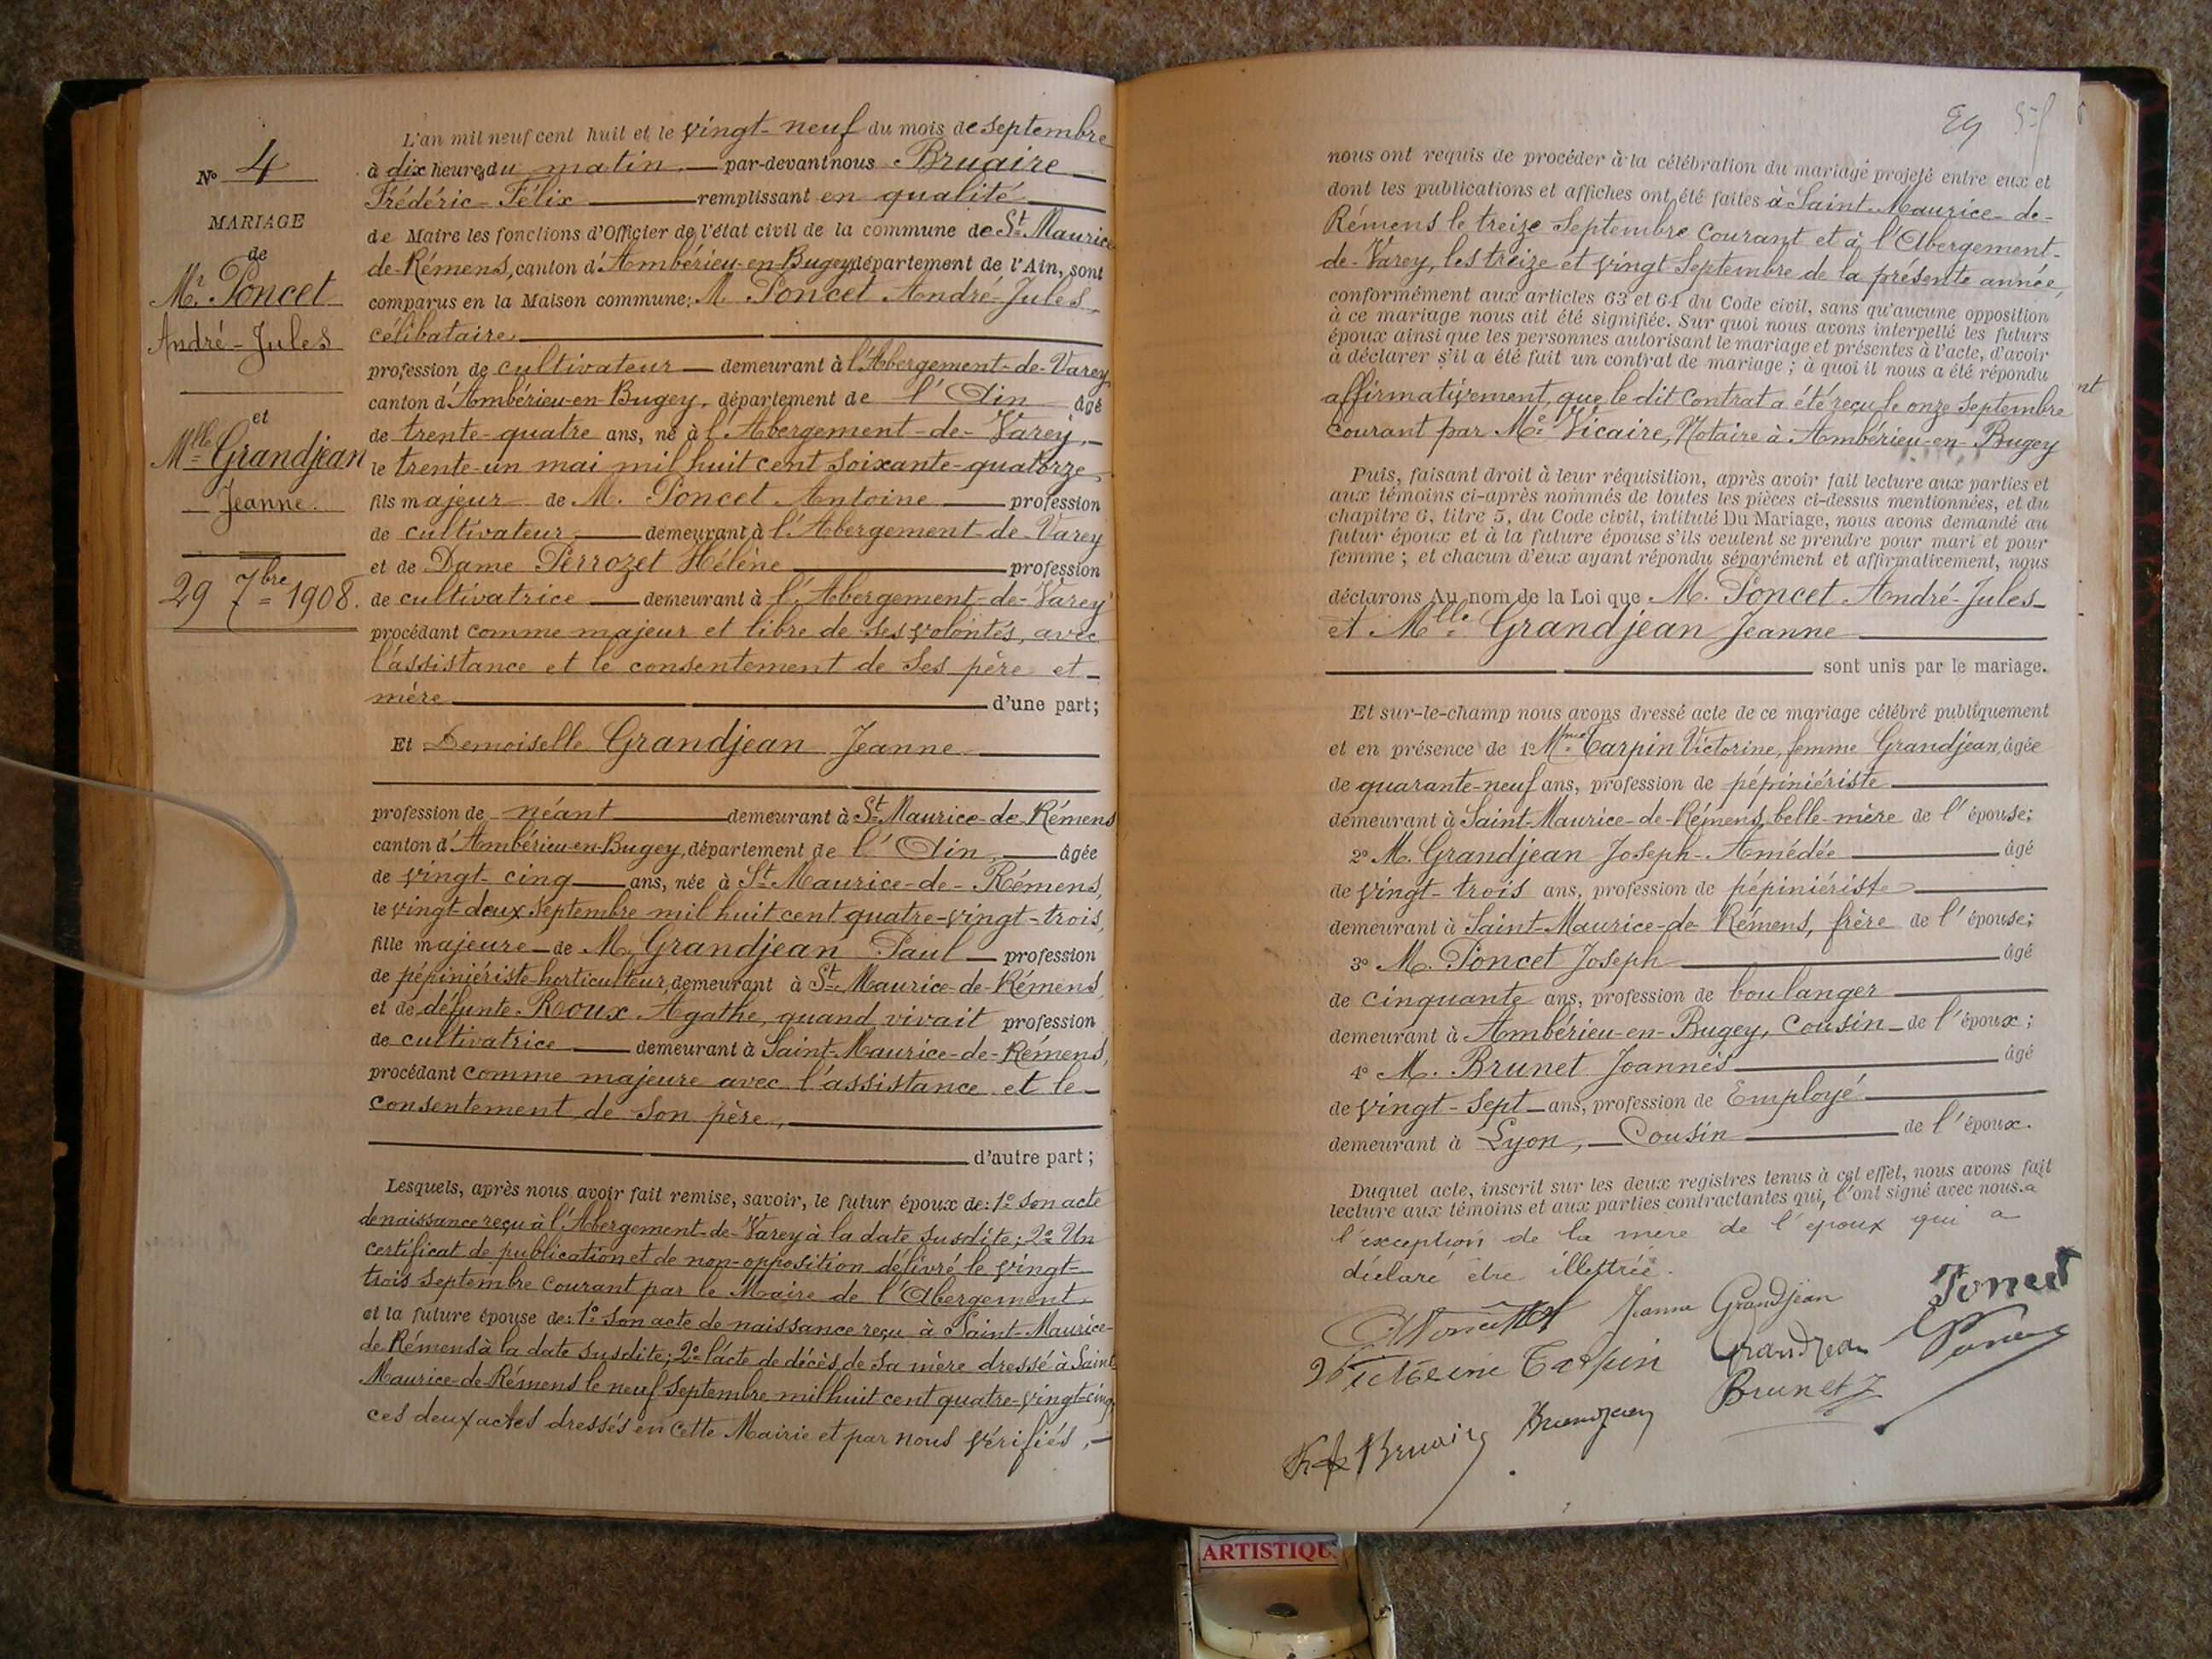 N° 4
MARIAGE
de
Mr. Poncet
André-Jules
et
Mlle Grandjean
Jeanne.
29 7bre 1908.
L'an mil neuf cent huit et le vingt-neuf du mois de septembre
à dix heures du matin, par-devant nous Bruaire
Frédéric-Félix remplissant en qualité
de Maire les fonctions d'Officier de l'état civil de la commune de St Maurice
de-Rémens, canton d'Ambérieu-en-Bugey, département de l'Ain, sont
comparus en la Maison commune: M. Poncet André-Jules
célibataire
profession de cultivateur demeurant à l'Abergement-de-Varey
canton d'Ambérieu-en-Bugey, département de l'Ain âgé
de trente-quatre ans, né à l'Abergement-de-Varey,
le trente-un mai mil huit cent soixante-quatorze
fils majeur de M. Poncet Antoine profession
de cultivateur demeurant à l'Abergement-de-Varey
et de Dame Perrozet Hélène profession
de cultivatrice demeurant à l'Abergement-de-Varey
procédant comme majeur et libre de ses volontés, avec
l'assistance et le consentement de ses père et
mère d'une part;
Et Demoiselle Grandjean Jeanne
profession de néant demeurant à St Maurice-de-Rémens
canton d'Ambérieu-en-Bugey, département de l'Ain, âgée
de vingt-cinq ans, née à St Maurice-de-Rémens,
le vingt-deux septembre mil huit cent quatre-vingt-trois,
fille majeure de M. Grandjean Paul profession
de pépiniériste-horticulteur, demeurant à St Maurice-de-Rémens,
et de défunte Roux Agathe, quand vivait profession
de cultivatrice demeurant à Saint-Maurice-de-Rémens,
procédant comme majeure avec l'assistance et le
consentement de son père,
d'autre part;
Lesquels, après nous avoir fait remise, savoir, le futur époux de: 1° son acte
de naissance reçu à l'Abergement-de-Varey à la date susdite; 2° Un
certificat de publication et de non-opposition délivré le vingt-
trois septembre courant par le Maire de l'Abergement
et la future épouse de: 1° son acte de naissance reçu à Saint-Maurice-
de Rémens à la date susdite; 2° l'acte de décès de sa mère dressé à Saint
Maurice-de-Rémens le neuf septembre mil huit cent quatre-vingt-cinq
ces deux actes dressés en cette Mairie et par nous vérifiés,
29
nous ont requis de procéder à la célébration du mariage projeté entre eux et
dont les publications et affiches ont été faites à Saint-Maurice-de-
Rémens le treize septembre courant et à l'Abergement-
de-Varey, les treize et vingt septembre de la présente année,
conformément aux articles 63 et 64 du Code civil, sans qu'aucune opposition
à ce mariage nous ait été signifiée. Sur quoi nous avons interpellé les futurs
époux ainsi que les personnes autorisant le mariage et présentes à l'acte, d'avoir
à déclarer s'il a été fait un contrat de mariage; à quoi il nous a été répondu
affirmativement, que le dit contrat a été reçu le onze septembre
courant par Me Vicaire, Notaire à Ambérieu-en-Bugey
Puis, faisant droit à leur réquisition, après avoir fait lecture aux parties et
aux témoins ci-après nommés de toutes les pièces ci-dessus mentionnées, et du
chapitre 6, titre 5, du Code civil, intitulé Du Mariage, nous avons demandé au
futur époux et à la future épouse s'ils veulent se prendre pour mari et pour
femme; et chacun d'eux ayant répondu séparément et affirmativement, nous
déclarons Au nom de la Loi que M. Poncet André-Jules
et Mlle Grandjean Jeanne
sont unis par le mariage.
Et sur-le-champ nous avons dressé acte de ce mariage célébré publiquement
et en présence de 1° Mme Carpin Victorine, femme Grandjean, âgée
de quarante-neuf ans, profession de pépiniériste
demeurant à Saint-Maurice-de-Rémens, belle-mère de l'épouse;
2° M. Grandjean Joseph-Amédée âgé
de vingt-trois ans, profession de pépiniériste
demeurant à Saint-Maurice-de Rémens, frère de l'épouse;
3° M. Poncet Joseph âgé
de cinquante ans, profession de boulanger
demeurant à Ambérieu-en-Bugey, cousin de l'époux;
4° M. Brunet Joannès âgé
de vingt-sept ans, profession de Employé
demeurant à Lyon, Cousin de l'époux.
Duquel acte, inscrit sur les deux registres tenus à cet effet, nous avons fait
lecture aux témoins et aux parties contractantes qui, l'ont signé avec nous. a
l'exception de la mere de l'epoux qui a
déclaré être illettrée.
Jeanne Grandjean Poncet
Victorine Carpin Grandjean Poncet
Brunet J
Bruaire Grandjean
ARTISTIQU